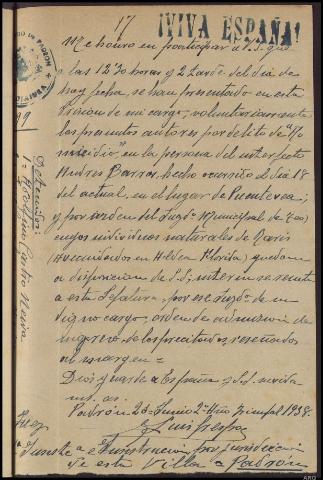 17
¡VIVA ESPAÑA!
Me honro en participar a S.S. que
a las 12'30 horas y 2 tarde del día de
hoy fecha, se han presentado en esta
Prisión de mi cargo, voluntariamente
los presuntos autores por delito de "Ho
micidio" en la persona del interfecto
Andres Barros, hecho ocurrido el día 18
del actual, en el lugar de Puentevea;
y por orden del Juzgº Municipal de Teo,
cuyos individuos naturales de
(Avecindados en ) quedan
a disposición de S.S, interin se remita
a esta Jefatura, por ese Juzgº de su
digno cargo, orden de admisión de
ingreso de los precitados reseñados
al margen=
Dios guarde a España y S.S. m
as.
Padrón 20 Junio 2º Año Triunfal 1938.
Luis
e Instrucción
de esta Villa = Padrón
DE PADRON
Detenidos:
1º Castro Neira
Juez